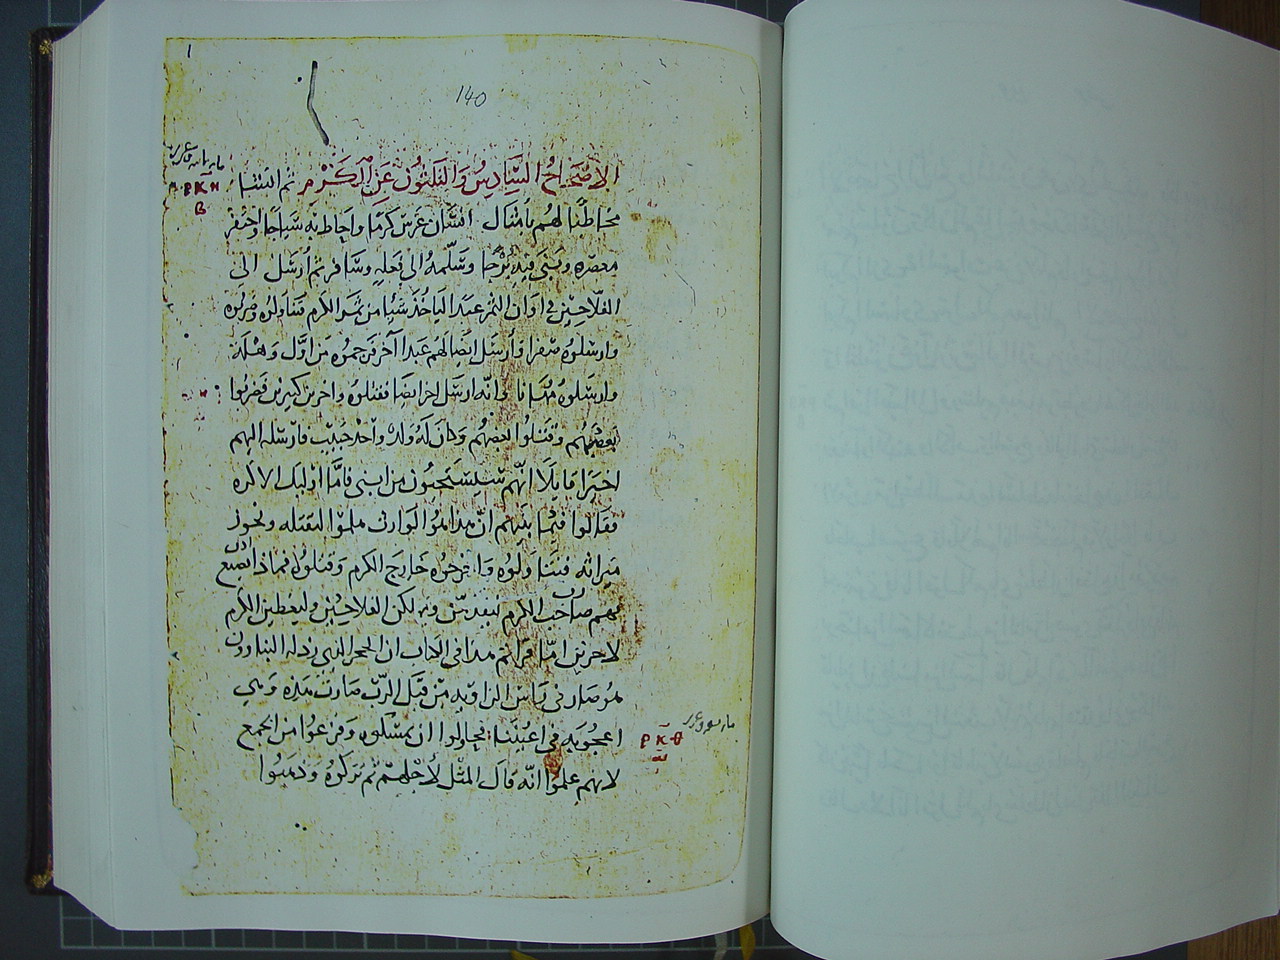 140
الاصحاح السادس والثلثون عن الكرم ثم ابتدا
مخاطبا لهم بامثال انسان غرس كرما واحاط به سياجا واحتفر
معصره وبنى فيه برجا وسلمه الى فعله وسافر ثم ارسل الى
الفلاحين في اوان الثمر عبدا لياخذ شيا من ثمر الكرم فتناولوه وضربوه
وارسلوه صفرا وارسل ايضا لهم عبدا آخر فرجموه من اول وهلة
وارسلوه مهانا وانه ارسل اخر ايضا فقتلوه واخرين كثيرين فضربوا
بعضهم وقتلوا بعضهم وكان له ولد واحد حبيب فارسله اليهم
اخيرا قايلا انهم سيستحيون من ابنى فاما اوليك الاكره
فقالوا فيما بينهم ان هذا هو الوارث هلموا لنقتله ونحوز
ميراثه فتناولوه واخرجوه خارج الكرم وقتلوه فماذا يصنع
بهم صاحب الكرم ليقدمن ويهلكن الفلاحين وليعطين الكرم
لاخرين اما قراتم هذا في الكتاب ان الحجر الذي رذله البناوون
هو صار في راس الزاويه من قبل الرب صارت هذه وهي
اعجوبه في اعيننا فحاولوا ان يمسكوه وفزعوا من الجمع
لانهم علموا انه قال المثل لاجلهم ثم تركوه وذهبوا